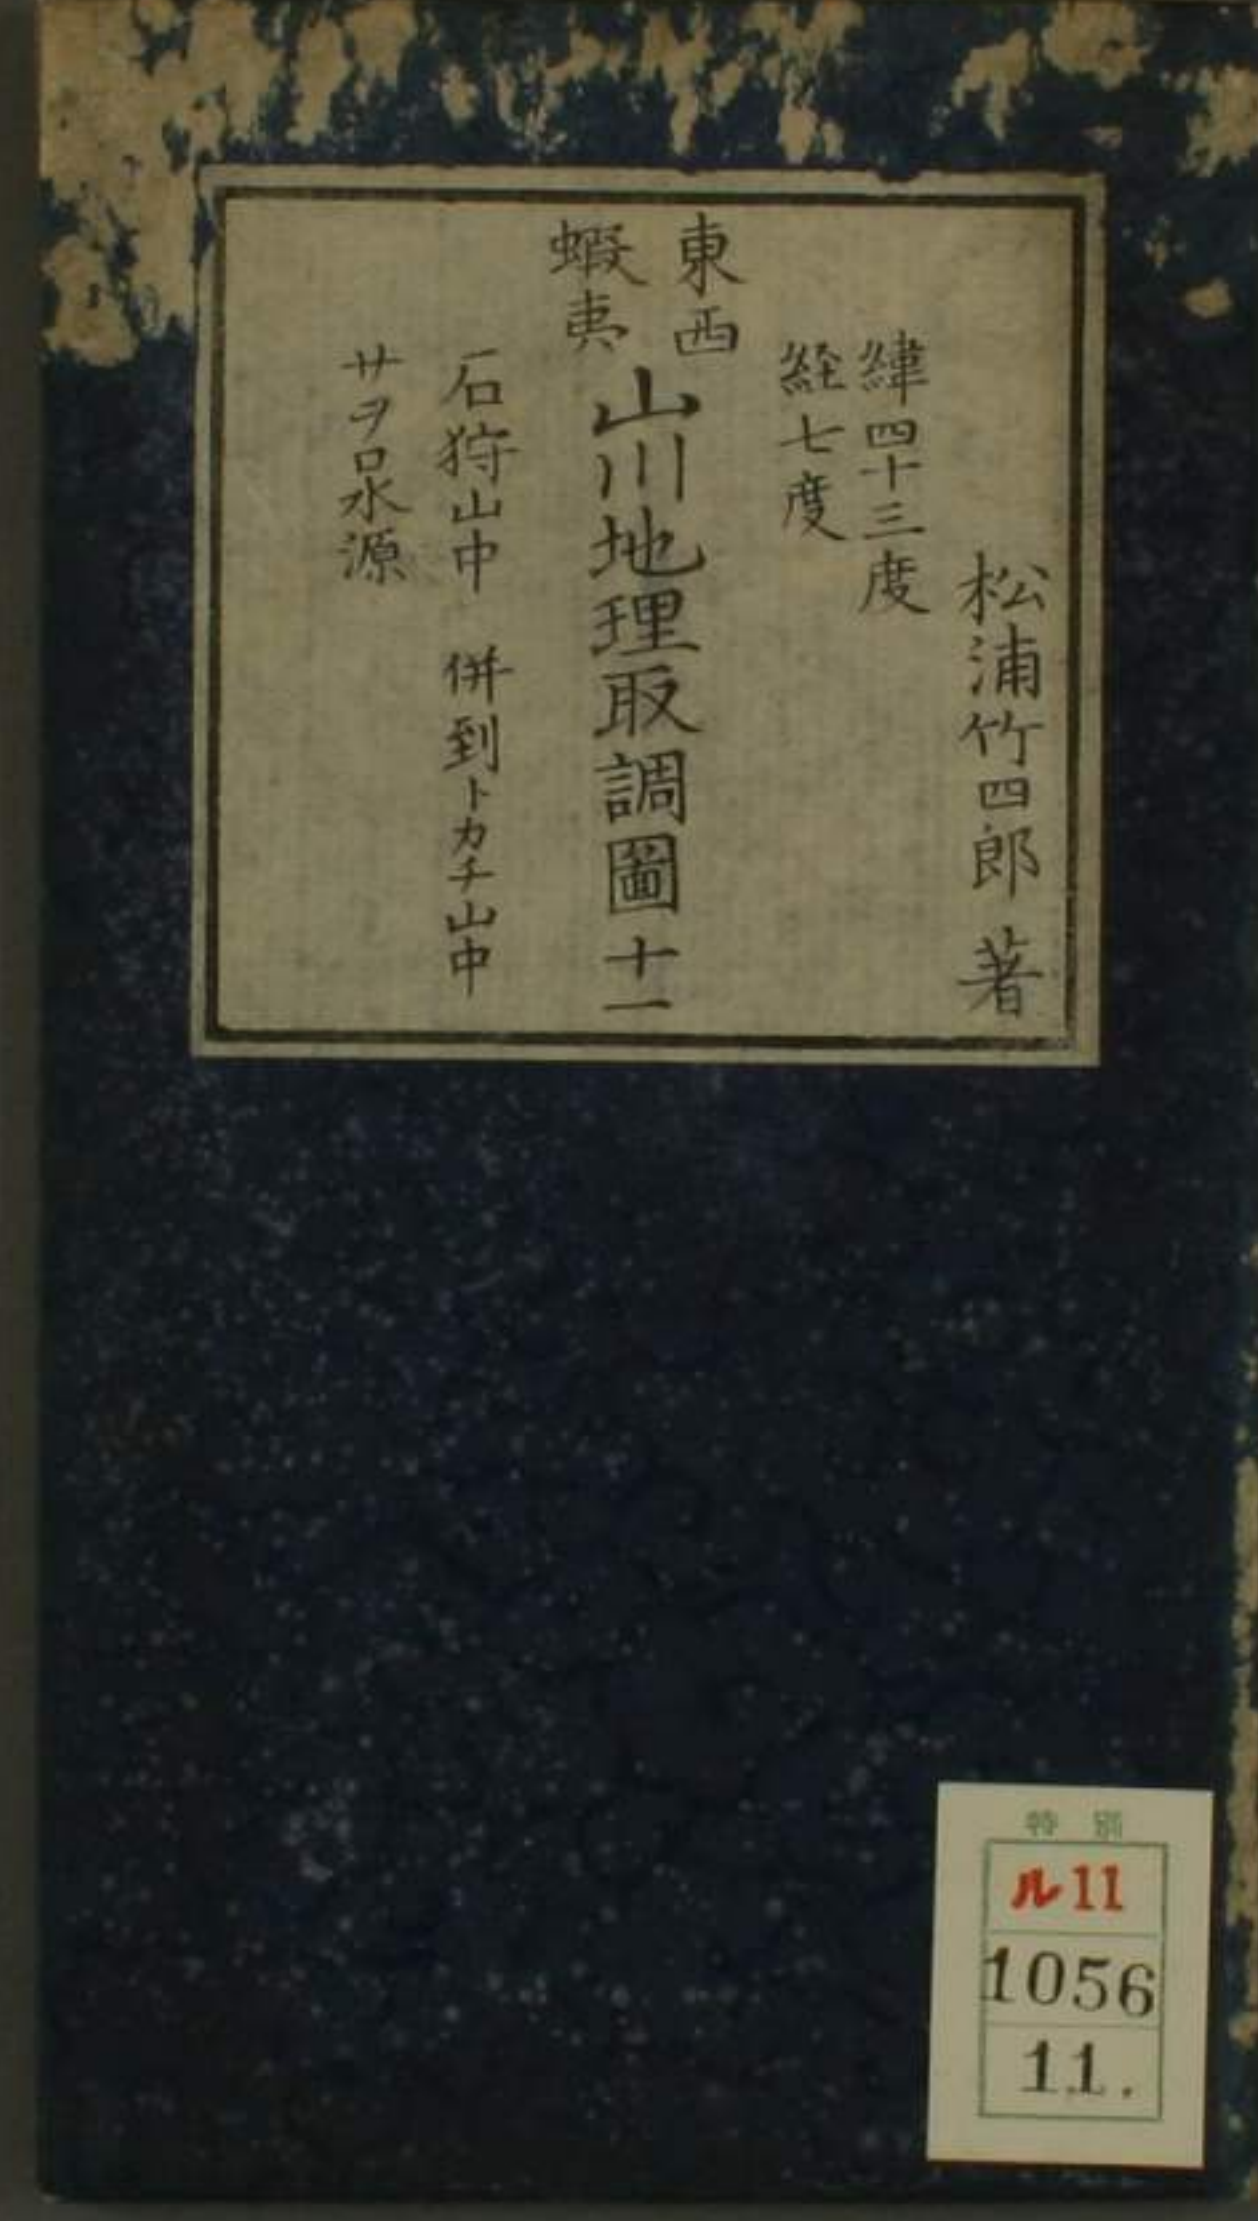 松浦竹四郎 著
緯四十三度
経七度
東西
蝦夷
山川地理取調圖十一
石狩山中 併到トカチ山中
サヲロ水源
特別
ル11
1056
11.